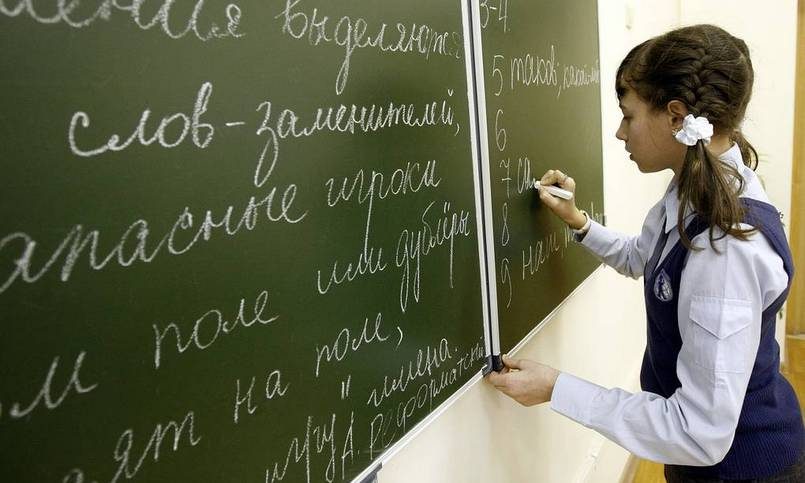 выделяются
слов-заменителей,
апасные игроки
поле или дублёры
ом поле
ят на поле,
игру" имена.
А. Реформатский
3-4
5 таков; какой-либо
6
7 са
8
9 наш